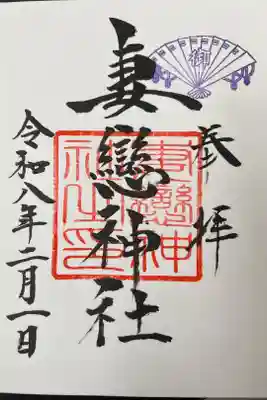 奉拝
妻戀神社
妻戀神社之印
令和八年二月一日